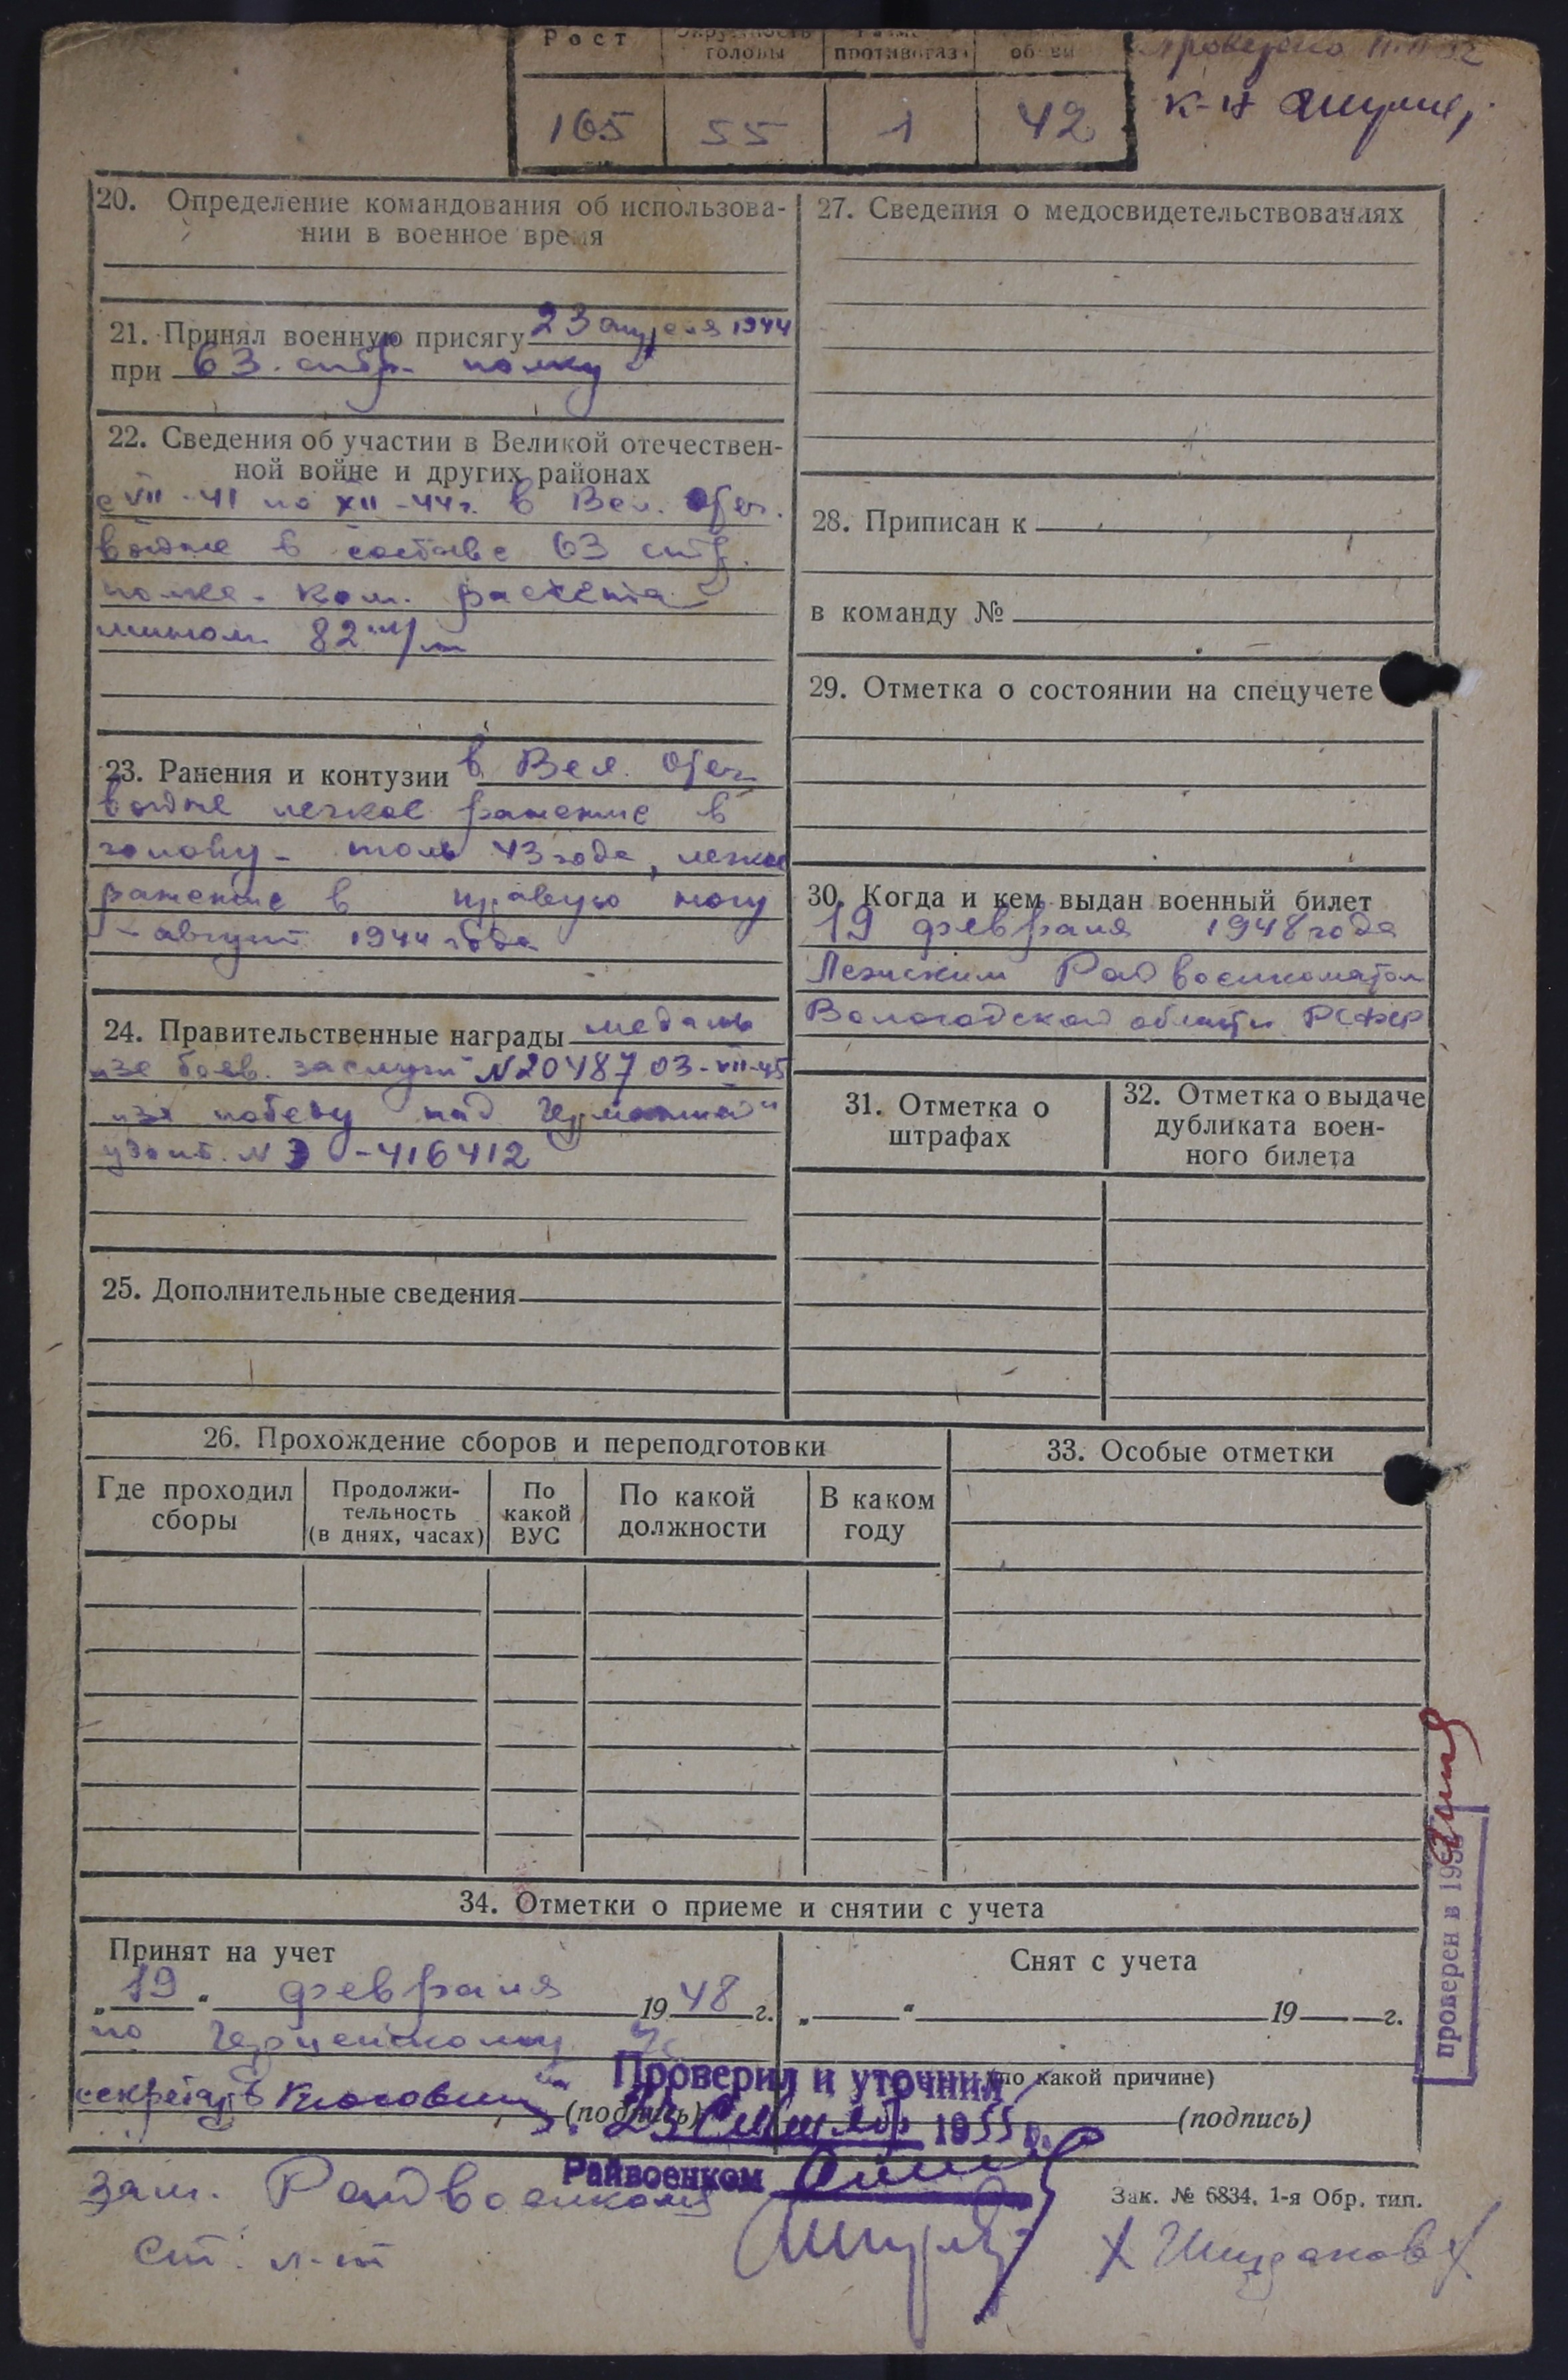 Рост
Окружность головы
противогаза
обуви
165 55 1 42
Проверено
к-н
20. Определение командования об использова-
нии в военное время
21. Принял военную присягу 23 апреля 1944
при 63. стр. полку
22. Сведения об участии в Великой отечествен-
ной войне и других районах
с VII-41 по XII-44 г. в Вел. Отеч.
войне в составе 63 стр.
полка - ком. расчета
мином. 82 м/м
23. Ранения и контузии в Вел. Отеч.
войне легкое ранение в
голову - июль 43 года, легкое
ранение в правую ногу
- август 1944 года
24. Правительственные награды медаль
"за боев. заслуги" N 20487 03-VII-45
"за победу над Германией"
удост. N Э -416412
25. Дополнительные сведения
26. Прохождение сборов и переподготовки
Где проходил сборы
Продолжи-
тельность
(в днях, часах)
По
какой
ВУС
По какой
должности
В каком
году
27. Сведения о медосвидетельствованиях
28. Приписан к
в команду №
29. Отметка о состоянии на спецучете
30. Когда и кем выдан военный билет
19 февраля 1948 года
Лежским Райвоенкоматом
Вологодской области РСФСР
31. Отметка о
штрафах
32. Отметка о выдаче
дубликата воен-
ного билета
33. Особые отметки
34. Отметки о приеме и снятии с учета
Принят на учет
„19" февраля 1948 г.
по
секретарь
(подпись)
Снят с учета
„ " 19 г.
(по какой причине)
(подпись)
Проверил и уточнил
23 1955 г.
Райвоенком
зам. Райвоенкома
ст. л-т
Зак. № 6834. 1-я Обр. тип.
проверен в 195